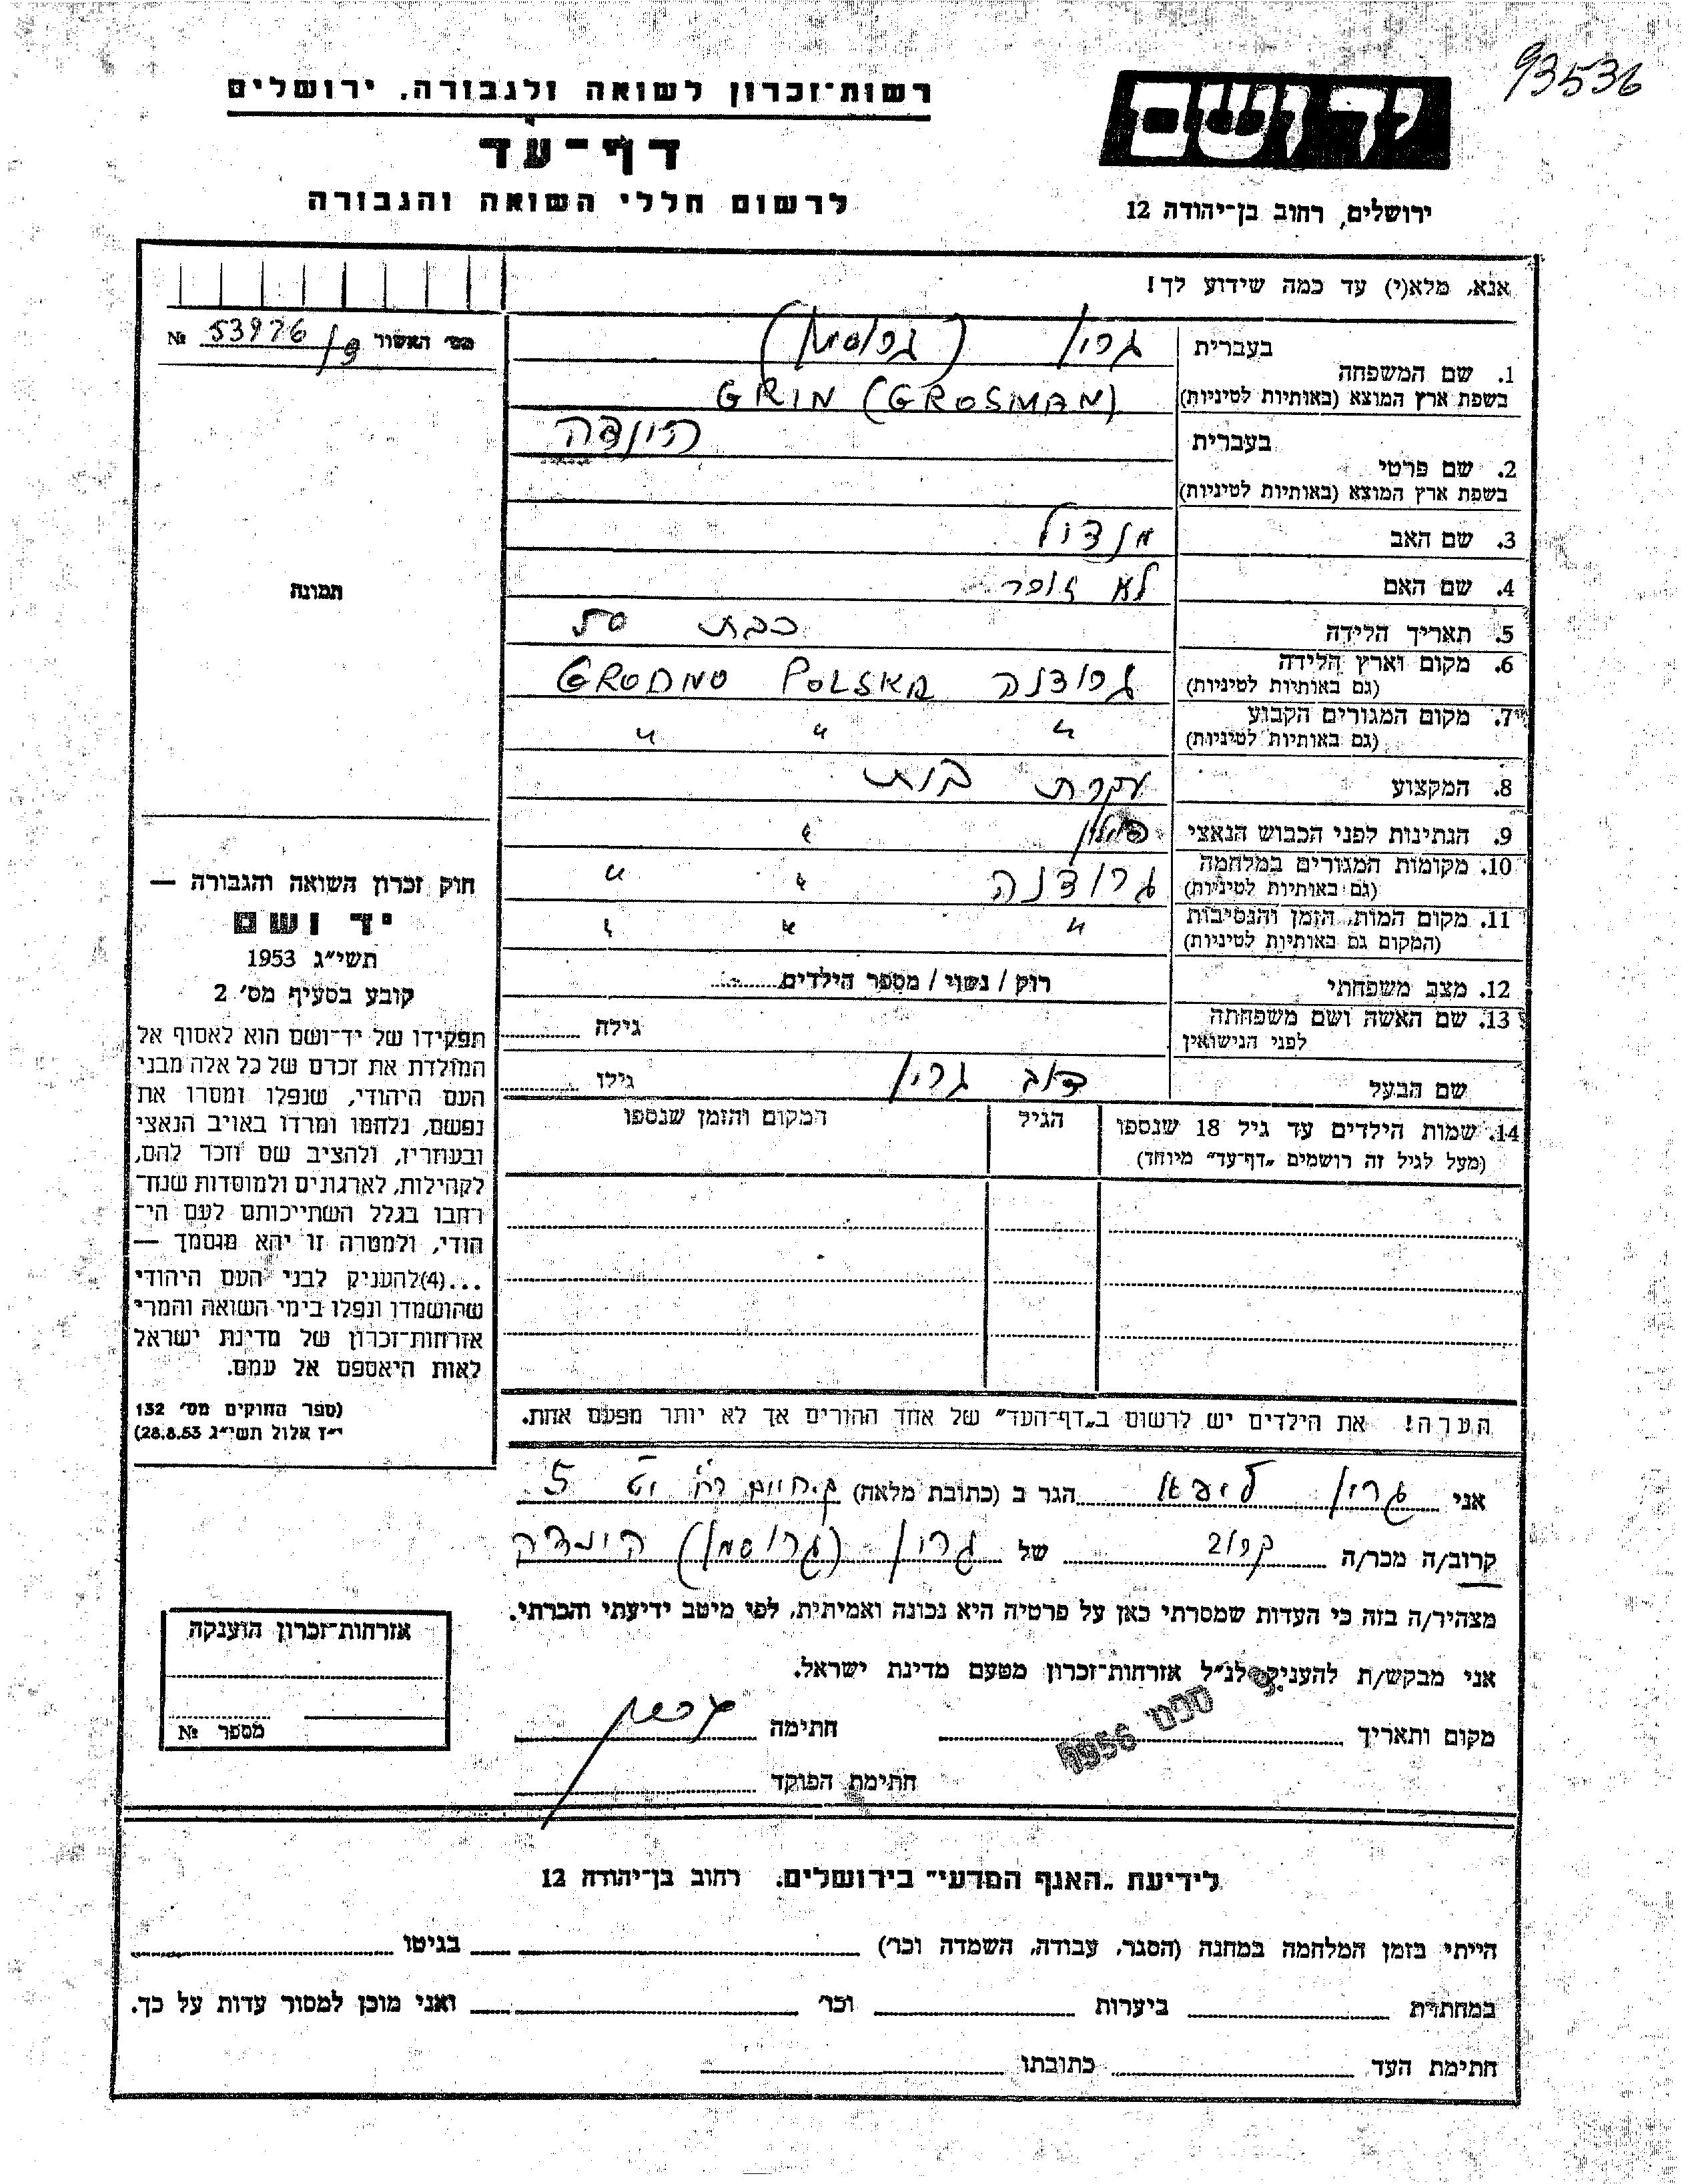 93536
יד ושם
ירושלים, רחוב בן־יהודה 12
רשות־זכרון לשואה ולגבורה, ירושלים
דף־עד
לרשום חללי השואה והגבורה
אנא, מלא(י) עד כמה שידוע לך!
מס׳ האשור 53976 /פ №
בעברית גרין (גרוסמן)
1. שם המשפחה
בשפת ארץ המוצא (באותיות לטיניות) GRIN (GROSMAN)
בעברית הינדה
2. שם פרטי
בשפת ארץ המוצא (באותיות לטיניות)
3. שם האב מנדול
4. שם האם לא זוכר
5. תאריך הלידה כבת 50
6. מקום וארץ הלידה
(גם באותיות לטיניות) גרודנה GRODNO POLSKA
7. מקום המגורים הקבוע
(גם באותיות לטיניות) " " "
8. המקצוע עקרת בית
9. הנתינות לפני הכבוש הנאצי פולין "
10. מקומות המגורים במלחמה
(גם באותיות לטיניות) גרודנה " "
11. מקום המות, הזמן והנסיבות " " "
(המקום גם באותיות לטיניות)
12. מצב משפחתי רוק / נשוי / מספר הילדים
13. שם האשה ושם משפחתה גילה
לפני הנישואין
שם הבעל דוב גרין גילו
14. שמות הילדים עד גיל 18 שנספו הגיל המקום והזמן שנספו
(מעל לגיל זה רושמים „דף־עד" מיוחד)
הערה! את הילדים יש לרשום ב„דף־העד" של אחד ההורים אך לא יותר מפעם אחת.
תמונה
חוק זכרון השואה והגבורה —
יד ושם
תשי״ג 1953
קובע בסעיף מס׳ 2
תפקידו של יד־ושם הוא לאסוף אל
המולדת את זכרם של כל אלה מבני
העם היהודי, שנפלו ומסרו את
נפשם, נלחמו ומרדו באויב הנאצי
ובעוזריו, ולהציב שם וזכר להם,
לקהילות, לארגונים ולמוסדות שנח־
רבו בגלל השתייכותם לעם הי־
הודי, ולמטרה זו יהא מוסמך —
...(4)להעניק לבני העם היהודי
שהושמדו ונפלו בימי השואה והמרי
אזרחות־זכרון של מדינת ישראל
לאות היאספם אל עמם.
(ספר החוקים מס׳ 132
י״ז אלול תשי״ג 28.8.53)
אני גרין ליפא הגר ב (כתובת מלאה) ק. חיים רח׳ 5
קרוב/ה מכר/ה קרוב של גרין (גרוסמן) הינדה
מצהיר/ה בזה כי העדות שמסרתי כאן על פרטיה היא נכונה ואמיתית, לפי מיטב ידיעתי והכרתי.
אני מבקש/ת להעניק לנ״ל אזרחות־זכרון מטעם מדינת ישראל.
מקום ותאריך 9. ספט׳ 1956 חתימה
חתימת הפוקד
אזרחות־זכרון הוענקה
מספר №
לידיעת „האגף המדעי" בירושלים. רחוב בן־יהודה 12
הייתי בזמן המלחמה במחנה (הסגר, עבודה, השמדה וכר) בגיטו
במחתרת ביערות וכר׳ ואני מוכן למסור עדות על כך.
חתימת העד כתובתו